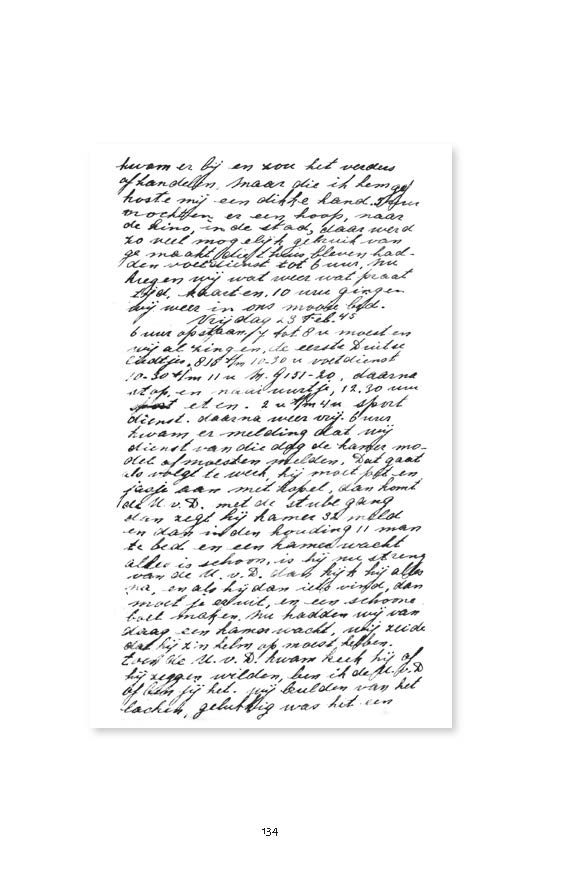 kwam er bij en zou het verders
afhandelen, maar die ik hem gaf
koste mij een dikke hand.
mochten er een hoop, naar
de kino, in de stad, daar werd
zo veel mogelijk gebruik van
ge maakt, die thuis bleven had-
den voetdienst tot 6 uur, nu
kregen wij wat weer wat praat
tijd, kaarten, 10 uru gingen
wij weer in ons mooie bed.
Vrijdag 23 Feb. 45
6 uur opstaan, 7 tot 8 u moesten
wij al zingen, de eerste Duitse
liedtjes, 815 t/m 10-30 u voetdienst
10-30 t/m 11 u M. G 151-20, daarna
stop en naai uurtje, 12.30 uur
eten. 2 u t/m 4 u sport
dienst. daarna weer vrij. 6 uur
kwam er melding dat wij
dienst van die dag de kamer mo-
dat of moesten melden. Dat gaat
als volgt te werk, hij moet pet en
jasje aan met kopel, dan komt
de U. v. D. met de stube gang
dan zegt hij kamer 32 meld
en dan in den houding 11 man
te bed en een kamerwacht
alles is schoon, is hij nu streng
van de U. v. D. dan kijk hij alles
na, en als hij dan iets vind, dan
moet je er uit, en een schoone
boel maken. Nu hadden wij van
daag een kamerwacht, wij zeide
dat hij z'n helm op moest hebben.
toen de U. v. D. kwam keek hij of
hij zeggen wilden, ben ik de U. v. D
of ben jij het. wij brulden van het
lachen, gelukkig was het een
134